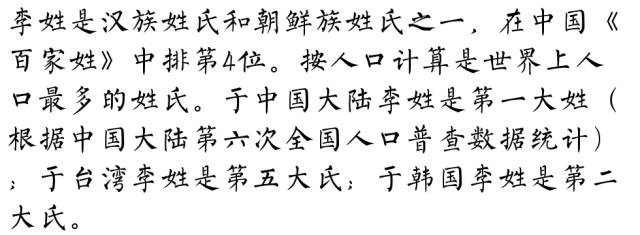 李姓是汉族姓氏和朝鲜族姓氏之一，在中国《
百家姓》中排第4位。按人口计算是世界上人
口最多的姓氏。于中国大陆李姓是第一大姓（
根据中国大陆第六次全国人口普查数据统计）
；于台湾李姓是第五大氏；于韩国李姓是第二
大氏。